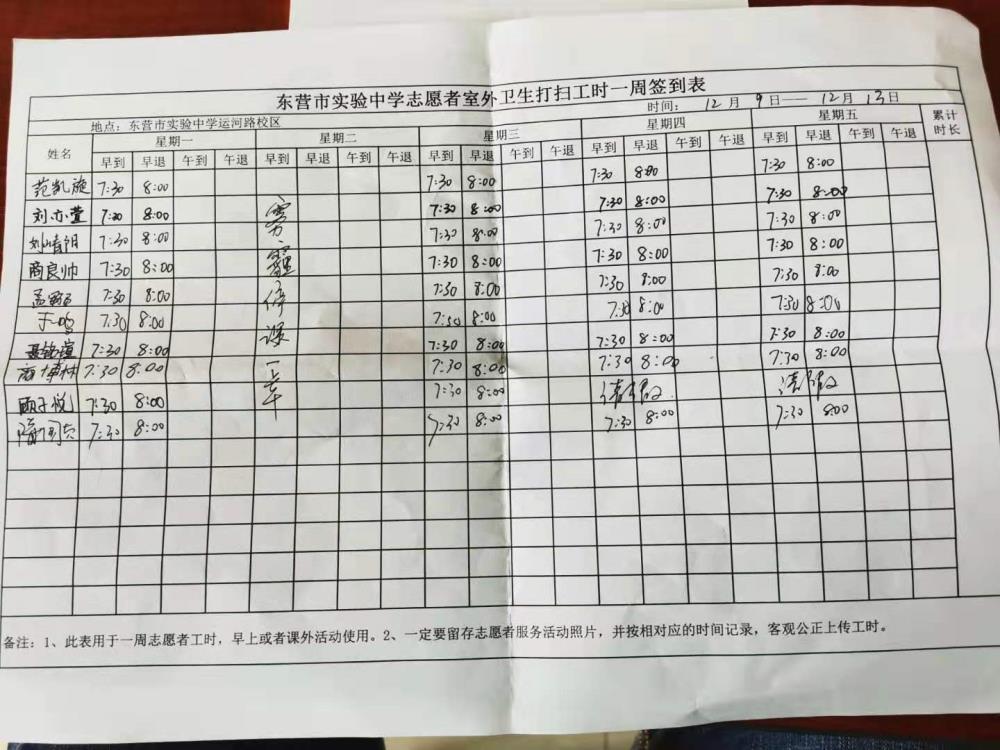 东营市实验中学志愿者室外卫生打扫工时一周签到表
地点：东营市实验中学运河路校区 时间： 12月 9日——12月 13日
姓名 星期一 星期二 星期三 星期四 星期五 累计时长
早到 早退 午到 午退 早到 早退 午到 午退 早到 早退 午到 午退 早到 早退 午到 午退 早到 早退 午到 午退
范凯旋 7:30 8:00 7:30 8:00 7:30 8:00 7:30 8:00
刘亦萱 7:30 8:00 雾 7:30 8:00 7:30 8:00 7:30 8:00
刘晴阳 7:30 8:00 7:30 8:00 7:30 8:00 7:30 8:00
商良帅 7:30 8:00 霾 7:30 8:00 7:30 8:00 7:30 8:00
孟 7:30 8:00 停 7:30 8:00 7:30 8:00 7:30 8:00
于鸣 7:30 8:00 课 7:30 8:00 7:30 8:00 7:30 8:00
聂铭萱 7:30 8:00 7:30 8:00 7:30 8:00 7:30 8:00
7:30 8:00 一 7:30 8:00 7:30 8:00 7:30 8:00
顾子悦 7:30 8:00 7:30 8:00 请假 请假
7:30 8:00 7:30 8:00 7:30 8:00 7:30 8:00
备注：1、此表用于一周志愿者工时，早上或者课外活动使用。2、一定要留存志愿者服务活动照片，并按相对应的时间记录，客观公正上传工时。